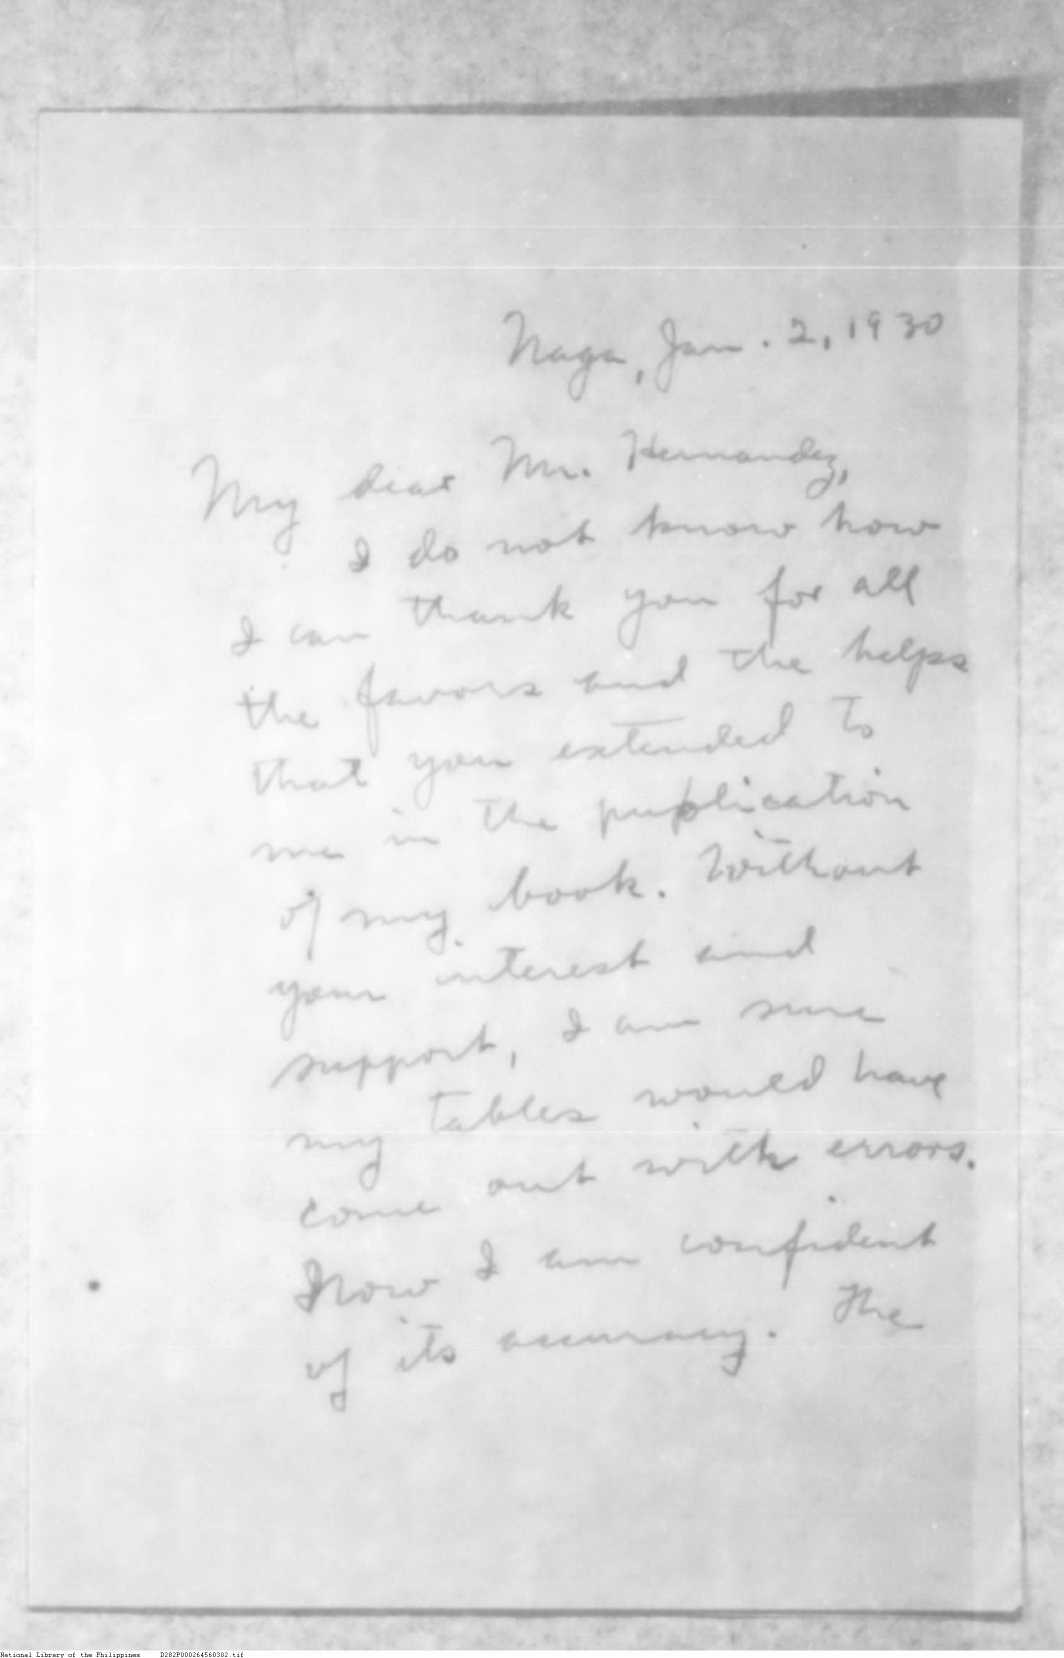 Naga, Jan. 2, 1930
My dear Mr. Hernandez,
I do not know how
I can thank you for all
the favors and the helps
that you extended to
me in the publication
of my book. Without
your interest and
support, I am sure
my tables would have
come out with errors.
Now I am confident
of its accuracy. The
National Library of the Philippines D282P000264560302.tif